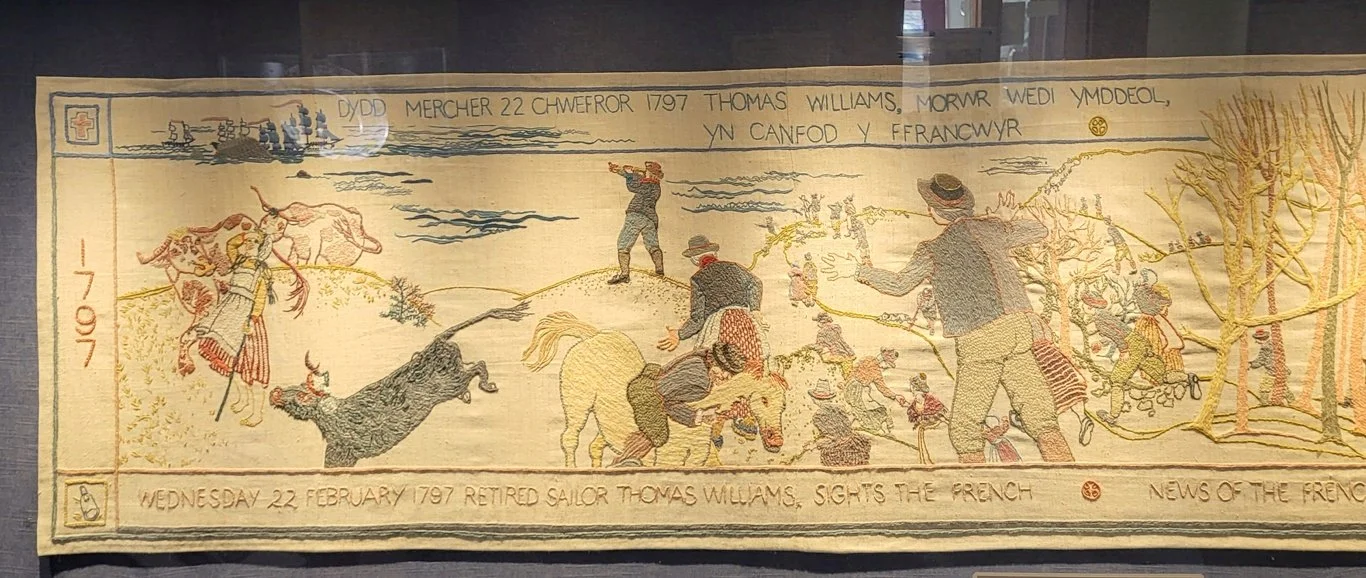 DYDD MERCHER 22 CHWEFROR 1797 THOMAS WILLIAMS, MORWR WEDI YMDDEOL,
YN CANFOD Y FFRANCWYR
1797
WEDNESDAY 22 FEBRUARY 1797 RETIRED SAILOR THOMAS WILLIAMS, SIGHTS THE FRENCH NEWS OF THE FRENC